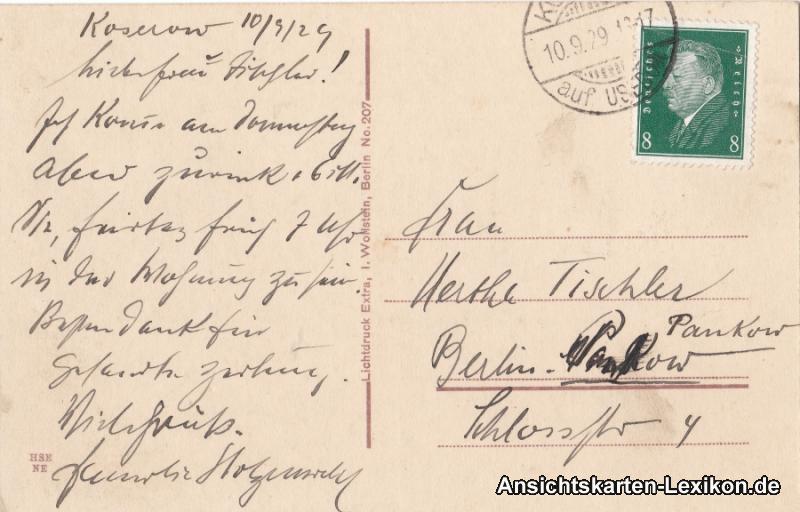 Koserow 10/9/29
Liebe Frau Tischler!
Ich Komme am Donnerstag
Abend zurück + bitte
Sie, Freitag früh 7 Uhr
in der Wohnung zu sein.
Besten Dank für
gesandte Zeitung.
Viele Grüße
Familie
HSK
NE
Lichtdruck Extra, I. Wollstein, Berlin No. 207
10.9.29
auf US
Deutsches Reich
8 8
Frau
Herthe Tischler
Berlin-Pankow Pankow
Schlossstr 4
Ansichtskarten-Lexikon.de